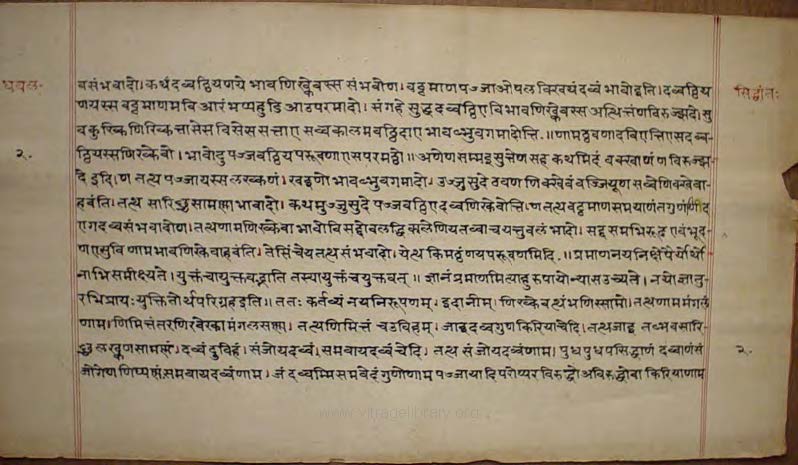 धवल॰
सिद्धांतः
२.
२.
वसंभवादो। कथं दव्वट्ठियणये भावणिक्खेवस्स संभवोण। वट्टमाणपज्जाओपलक्खियंदव्वं भावोइति। दव्वट्ठिय
णयस्स वट्टमाणमवि आरंभप्पहुडि आउपरमादो। संगहे सुद्धदव्वट्ठिए विभावणिक्खेवस्स अत्थित्तंणविरुज्झदे। सु
वकुक्खिणिक्खित्तासेस विसेससत्ताए सव्वकालमवट्ठिदाए भावब्भुवगमादोत्ति॥ णामट्ठवणादविएत्तिएसदव्व-
ट्ठियस्सणिक्खेवो। भावोदुपज्जवट्ठियपरूवणाएसपरमट्ठो॥ अणेणसम्मइसुत्तेण सह कथमिदं वक्खाणं णविरुज्झ
दे इदि। ण तत्थ पज्जायस्सलक्खणं। खइणोभावब्भुवगमादो। उज्जुसुदे ठवणणिक्खेवं वज्जियूणसव्वेणिक्खेवा
हवंति। तत्थ सारिच्छसामण्णाभावादो। कथमुज्जुसुदे पज्जवट्ठिएदव्वणिक्खेवोत्ति। ण तत्थवट्टमाणसमयाणंतगुणण्णिद
एगदव्वसंभवादोण। तत्थणामणिक्खेवा भावोविसद्दोवलद्धिकालेणियतवाचयत्तुवलंभादो। सद्दसमभिरूढ एवंभूद-
णएसुविणामभावणिक्खेवाहवंति। तेसिंचेयतत्थसंभवादो। येत्थ किमट्ठंणयपरूवणमिदि॥ प्रमाणनयनिक्षेपैर्योर्थो
नाभिसमीक्ष्यते। युक्तंचायुक्तवद्भाति तस्यायुक्तंचयुक्तवत्॥ ज्ञानंप्रमाणमित्याहुरुपायोन्यासउच्यते। नयोज्ञातु-
रभिप्रायःयुक्तितोर्थपरिग्रहइति॥ ततः कर्तव्यं नयनिरूपणम्। इदानीम्। णिरक्खेवत्थंभणिस्सामो। तत्थणाममंगलं
णाम। णिमित्तंतरणिरवेरकामंगलसण्णा। तत्थणिमित्तं चउविहम्। जाइदव्वगुणकिरियाचेदि। तत्थजाइ तब्भवसारि-
च्छलक्खणसामण्णं। दव्वंदुविहं। संजोयदव्वं। समवायदव्वंचेदि। तत्थ संजोयदव्वंणाम। पुधपुधपसिद्धाणं दव्वाणंसं
जोगेणणिप्पण्णं। समवायदव्वंणाम। जं दव्वम्मिसमवेदं गुणोणाम पज्जायादिपरोप्परविरुद्धो अविरुद्धोवा किरियाणाम
www.vitragelibrary.org